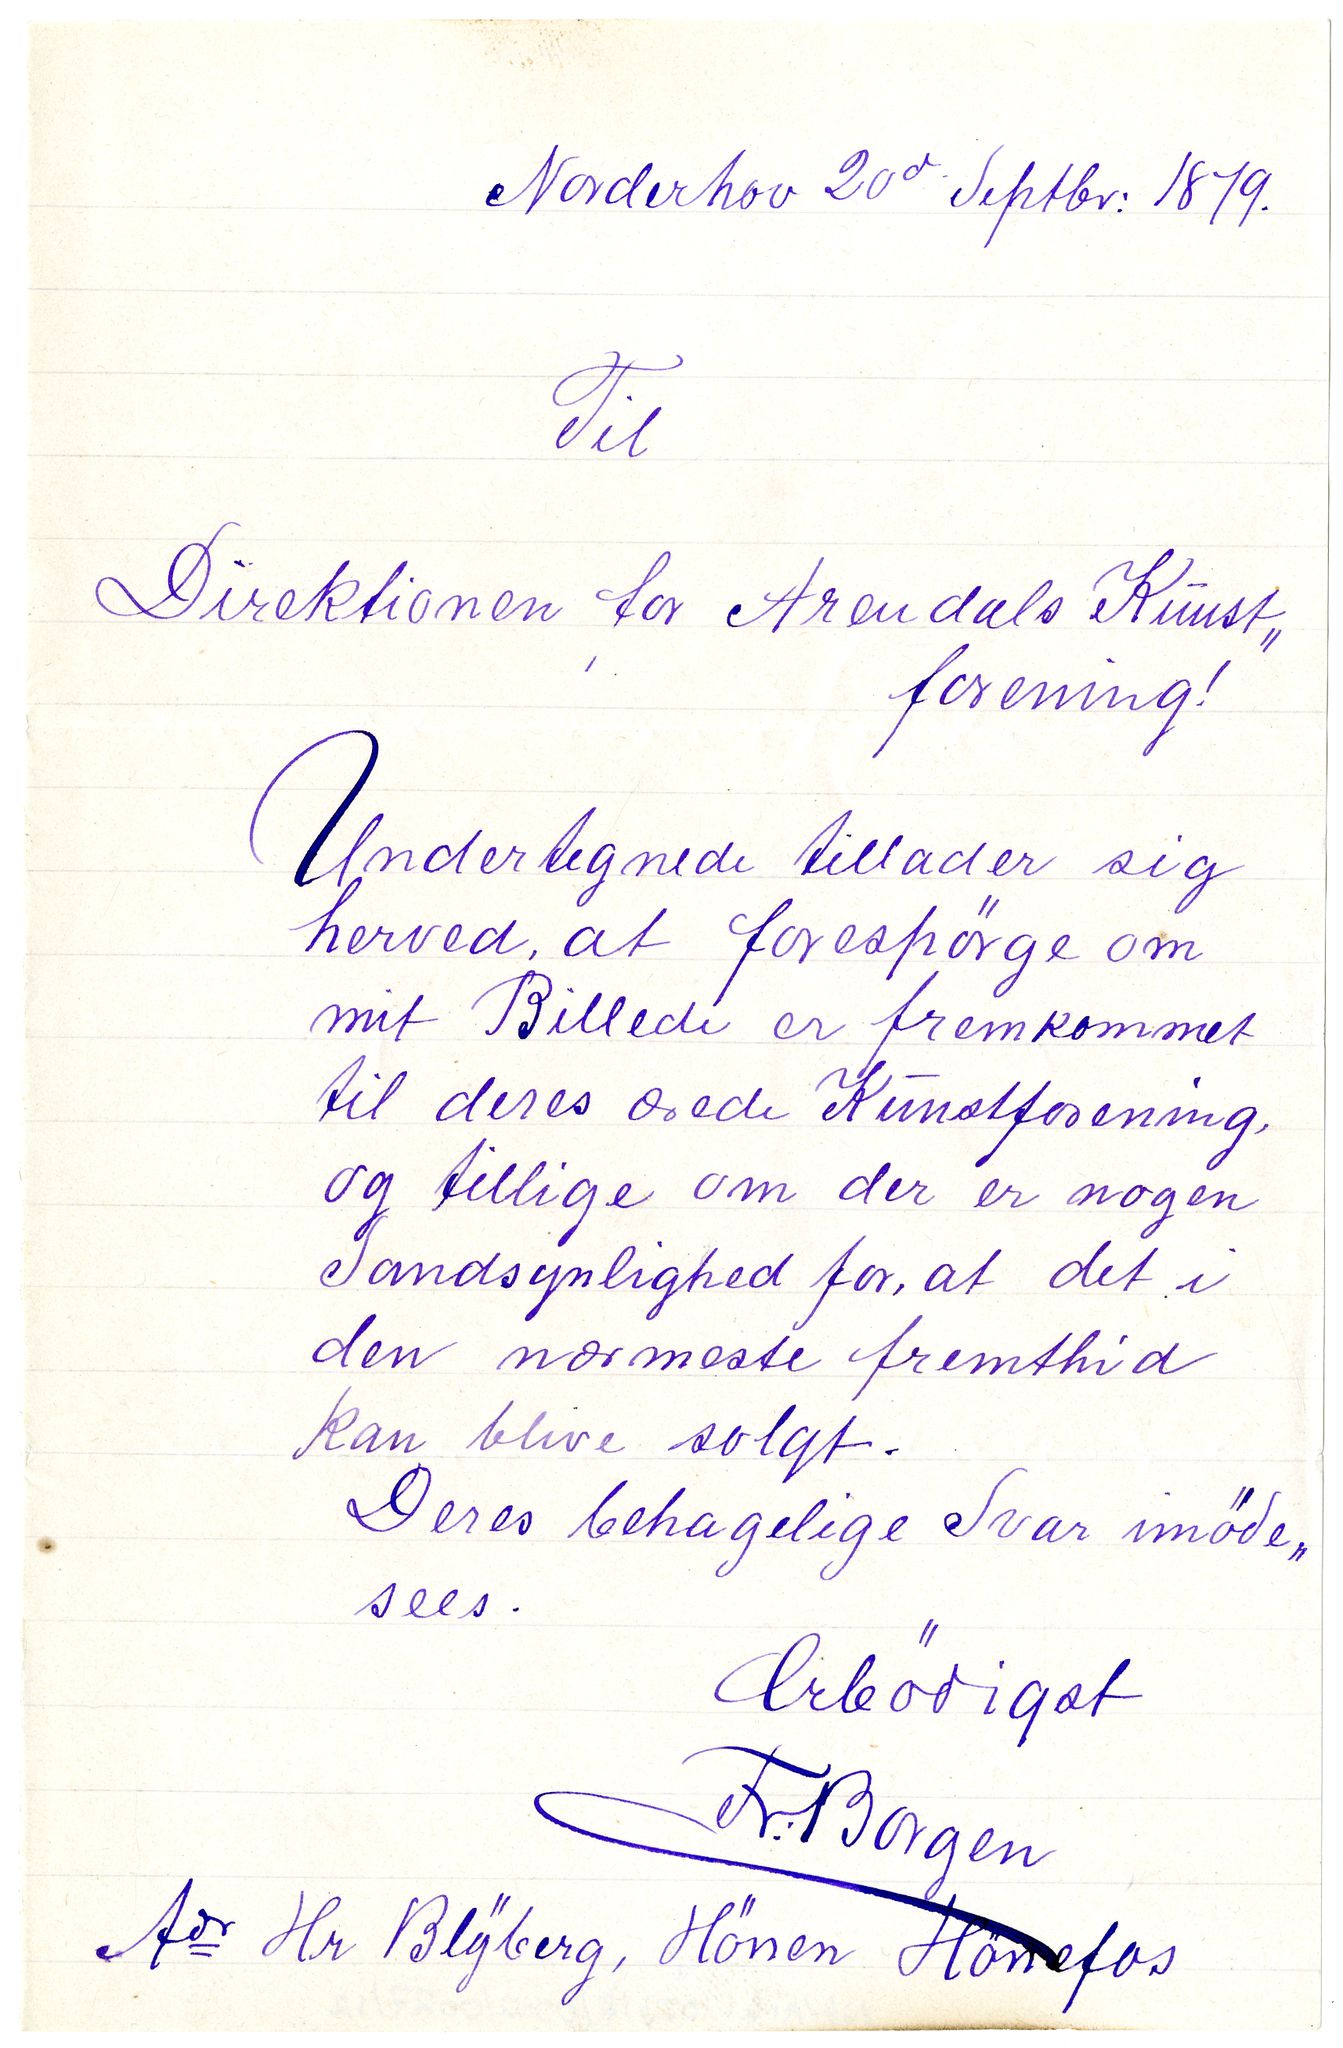 Norderhov 20d Septbr: 1879.
Til
Direktionen for Arendals Kunst„
forening!
Undertegnede tillader sig
herved, at forespörge om
mit Billede er fremkommet
til deres ærede Kunstforening,
og tillige om der er nogen
Sandsynlighed for, at det i
den nærmeste fremthid
kan blive solgt.
Deres behagelige Svar imöde„
sees.
Ærbödigst
Fr: Borgen
Adr Hr Blÿberg, Hönen Hönefos